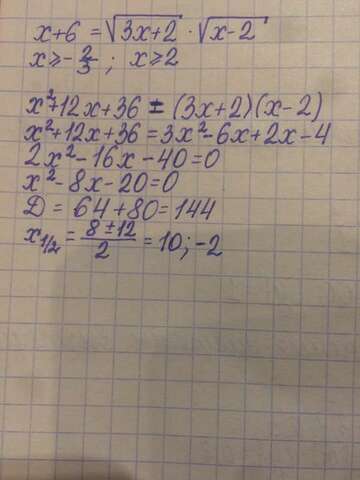 x+6 = √(3x+2) · √(x-2)
x ≥ -2/3 ; x ≥ 2
x²+12x+36 = (3x+2)(x-2)
x²+12x+36 = 3x²-6x+2x-4
2x²-16x-40=0
x²-8x-20=0
D = 64+80=144
x₁/₂ = (8±12)/2 = 10; -2